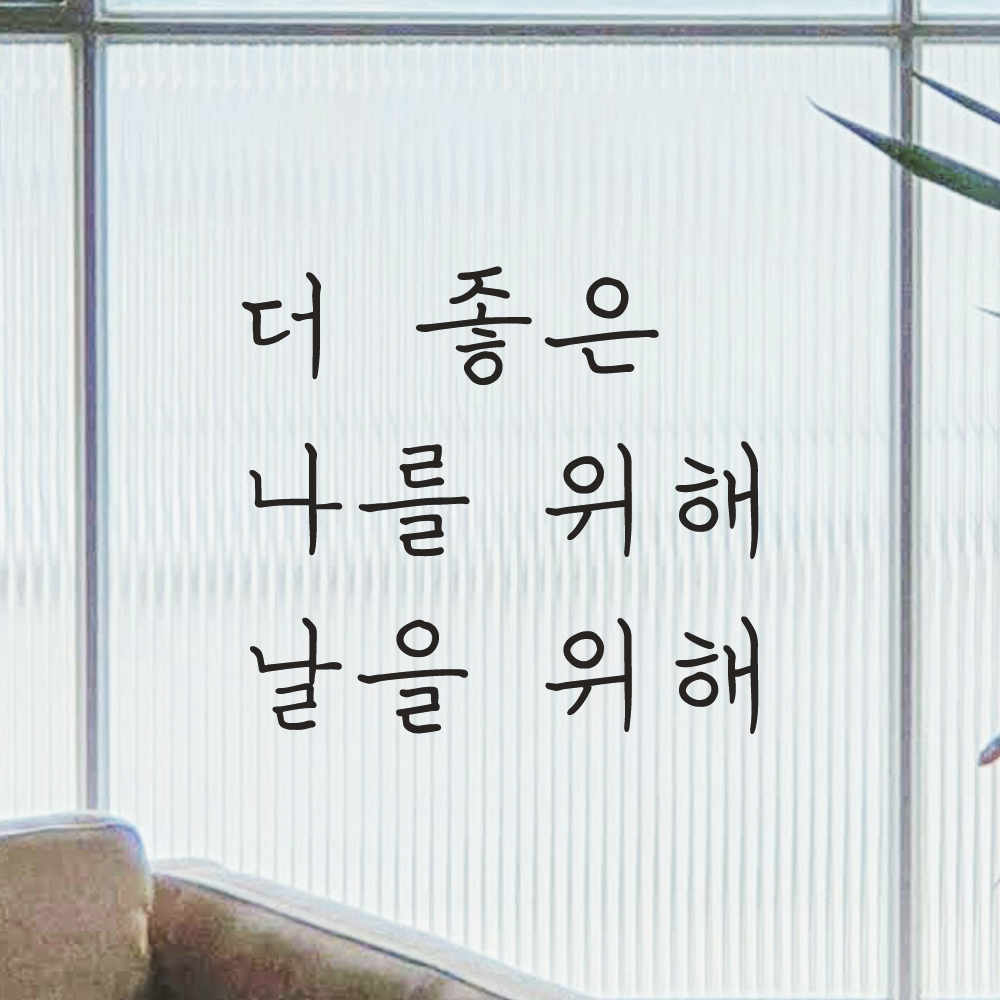 더 좋은
나를 위해
날을 위해